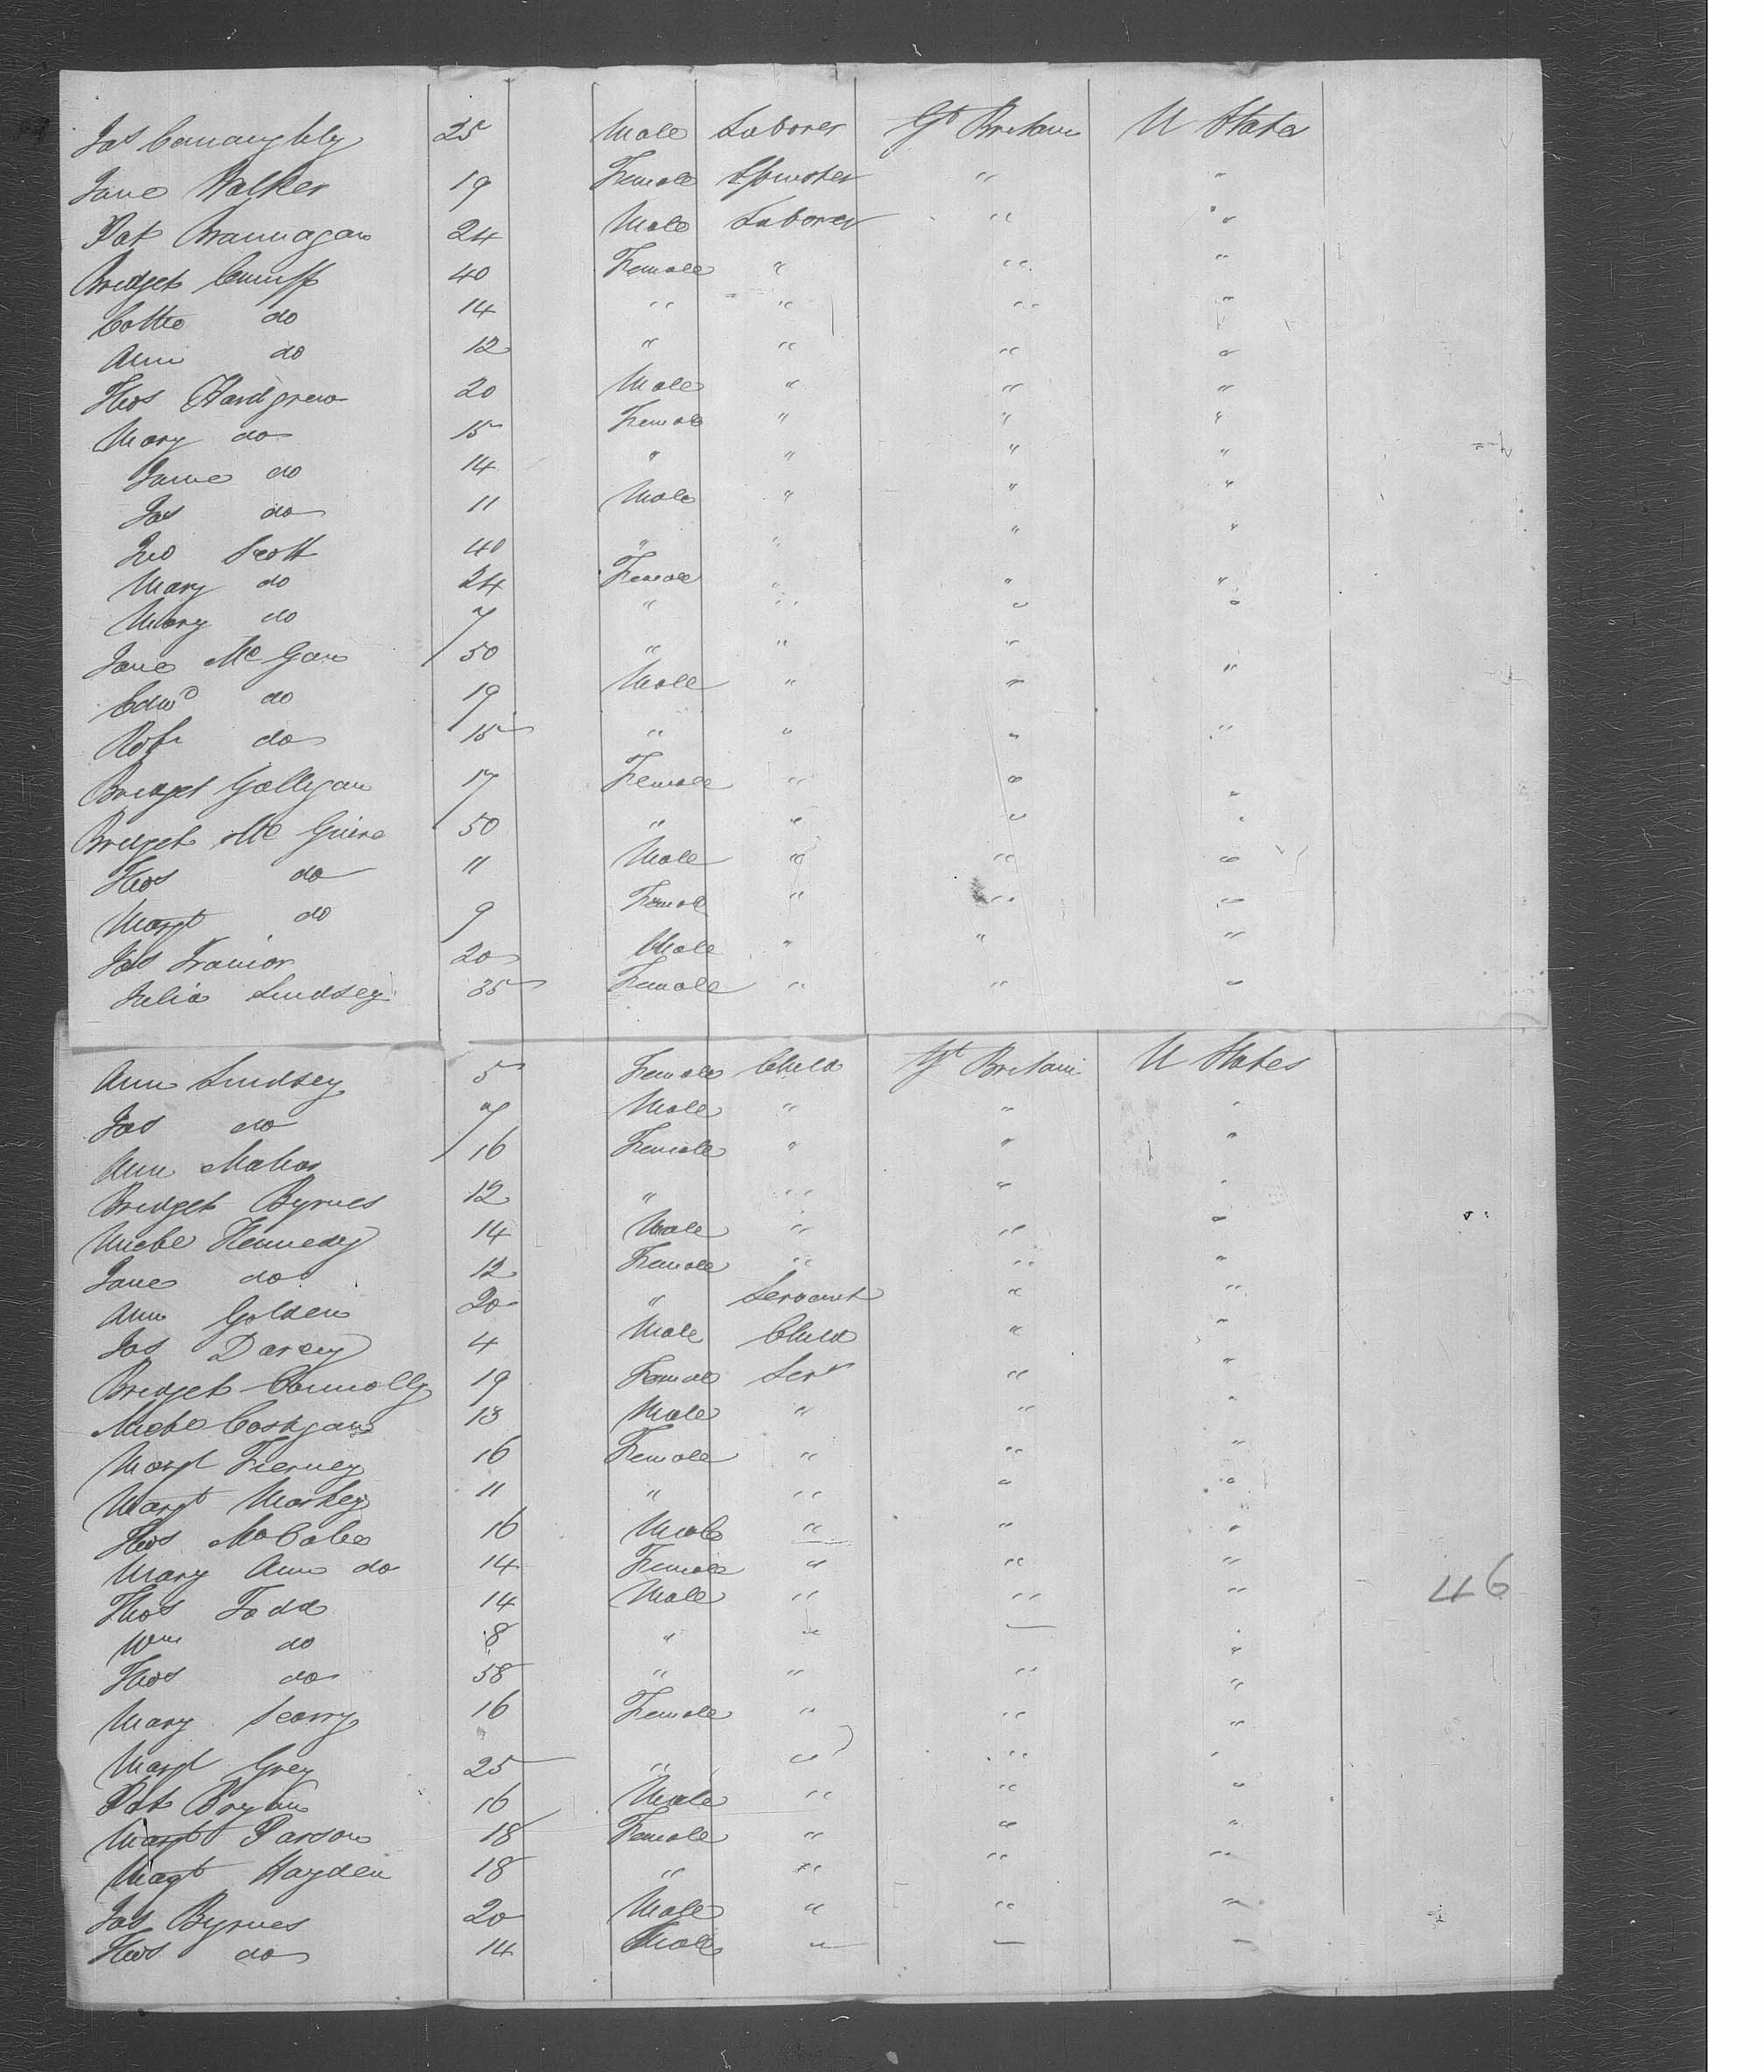 Jas Conaughty 25 Male Laborer Gt Britain U States
Jane Walker 19 Female Spinster " "
Pat Brannagan 24 Male Laborer " "
Bridget Cuniff 40 Female " " "
Cathe do 14 " " " "
Ann do 12 " " " "
Thos Hardgrew 20 Male " " "
Mary do 15 Female " " "
Jane do 14 " " " "
Jas do 11 Male " " "
Jno Scott 40 " " " "
Mary do 24 Female " " "
Mary do 7 " " " "
Jane McGan 50 " " " "
Edwd do 19 Male " " "
Robt do 15 " " " "
Bridget Galligan 17 Female " " "
Bridget McGuire 50 " " " "
Thos do 11 Male " " "
Margt do 9 Female " " "
Jas Trainor 20 Male " " "
Julia Lindsey 35 Female " " "
Ann Lindsey 5 Female Child Gt Britain U States
Jas do 7 Male " " "
Ann Mahon 16 Female " " "
Bridget Byrnes 12 " " " "
Michl Kennedy 14 Male " " "
Jane do 12 Female " " "
Ann Golden 20 " Servant " "
Jas Darcy 4 Male Child " "
Bridget Connolly 19 Female Sert " "
Michl Costgan 13 Male " " "
Margt Tierney 16 Female " " "
Margt Markey 11 " " " "
Thos McCabe 16 Male " " "
Mary Ann do 14 Female " " "
Thos Todd 14 Male " " "
46
Wm do 8 " " — "
Thos do 58 " " " "
Mary Scarry 16 Female " " "
Margt Grey 25 " " " "
Pat Bryan 16 Male " " "
Margt Parson 18 Female " " "
Magt Hayden 18 " " " "
Jas Byrnes 20 Male " " "
Thos do 14 Male " — —